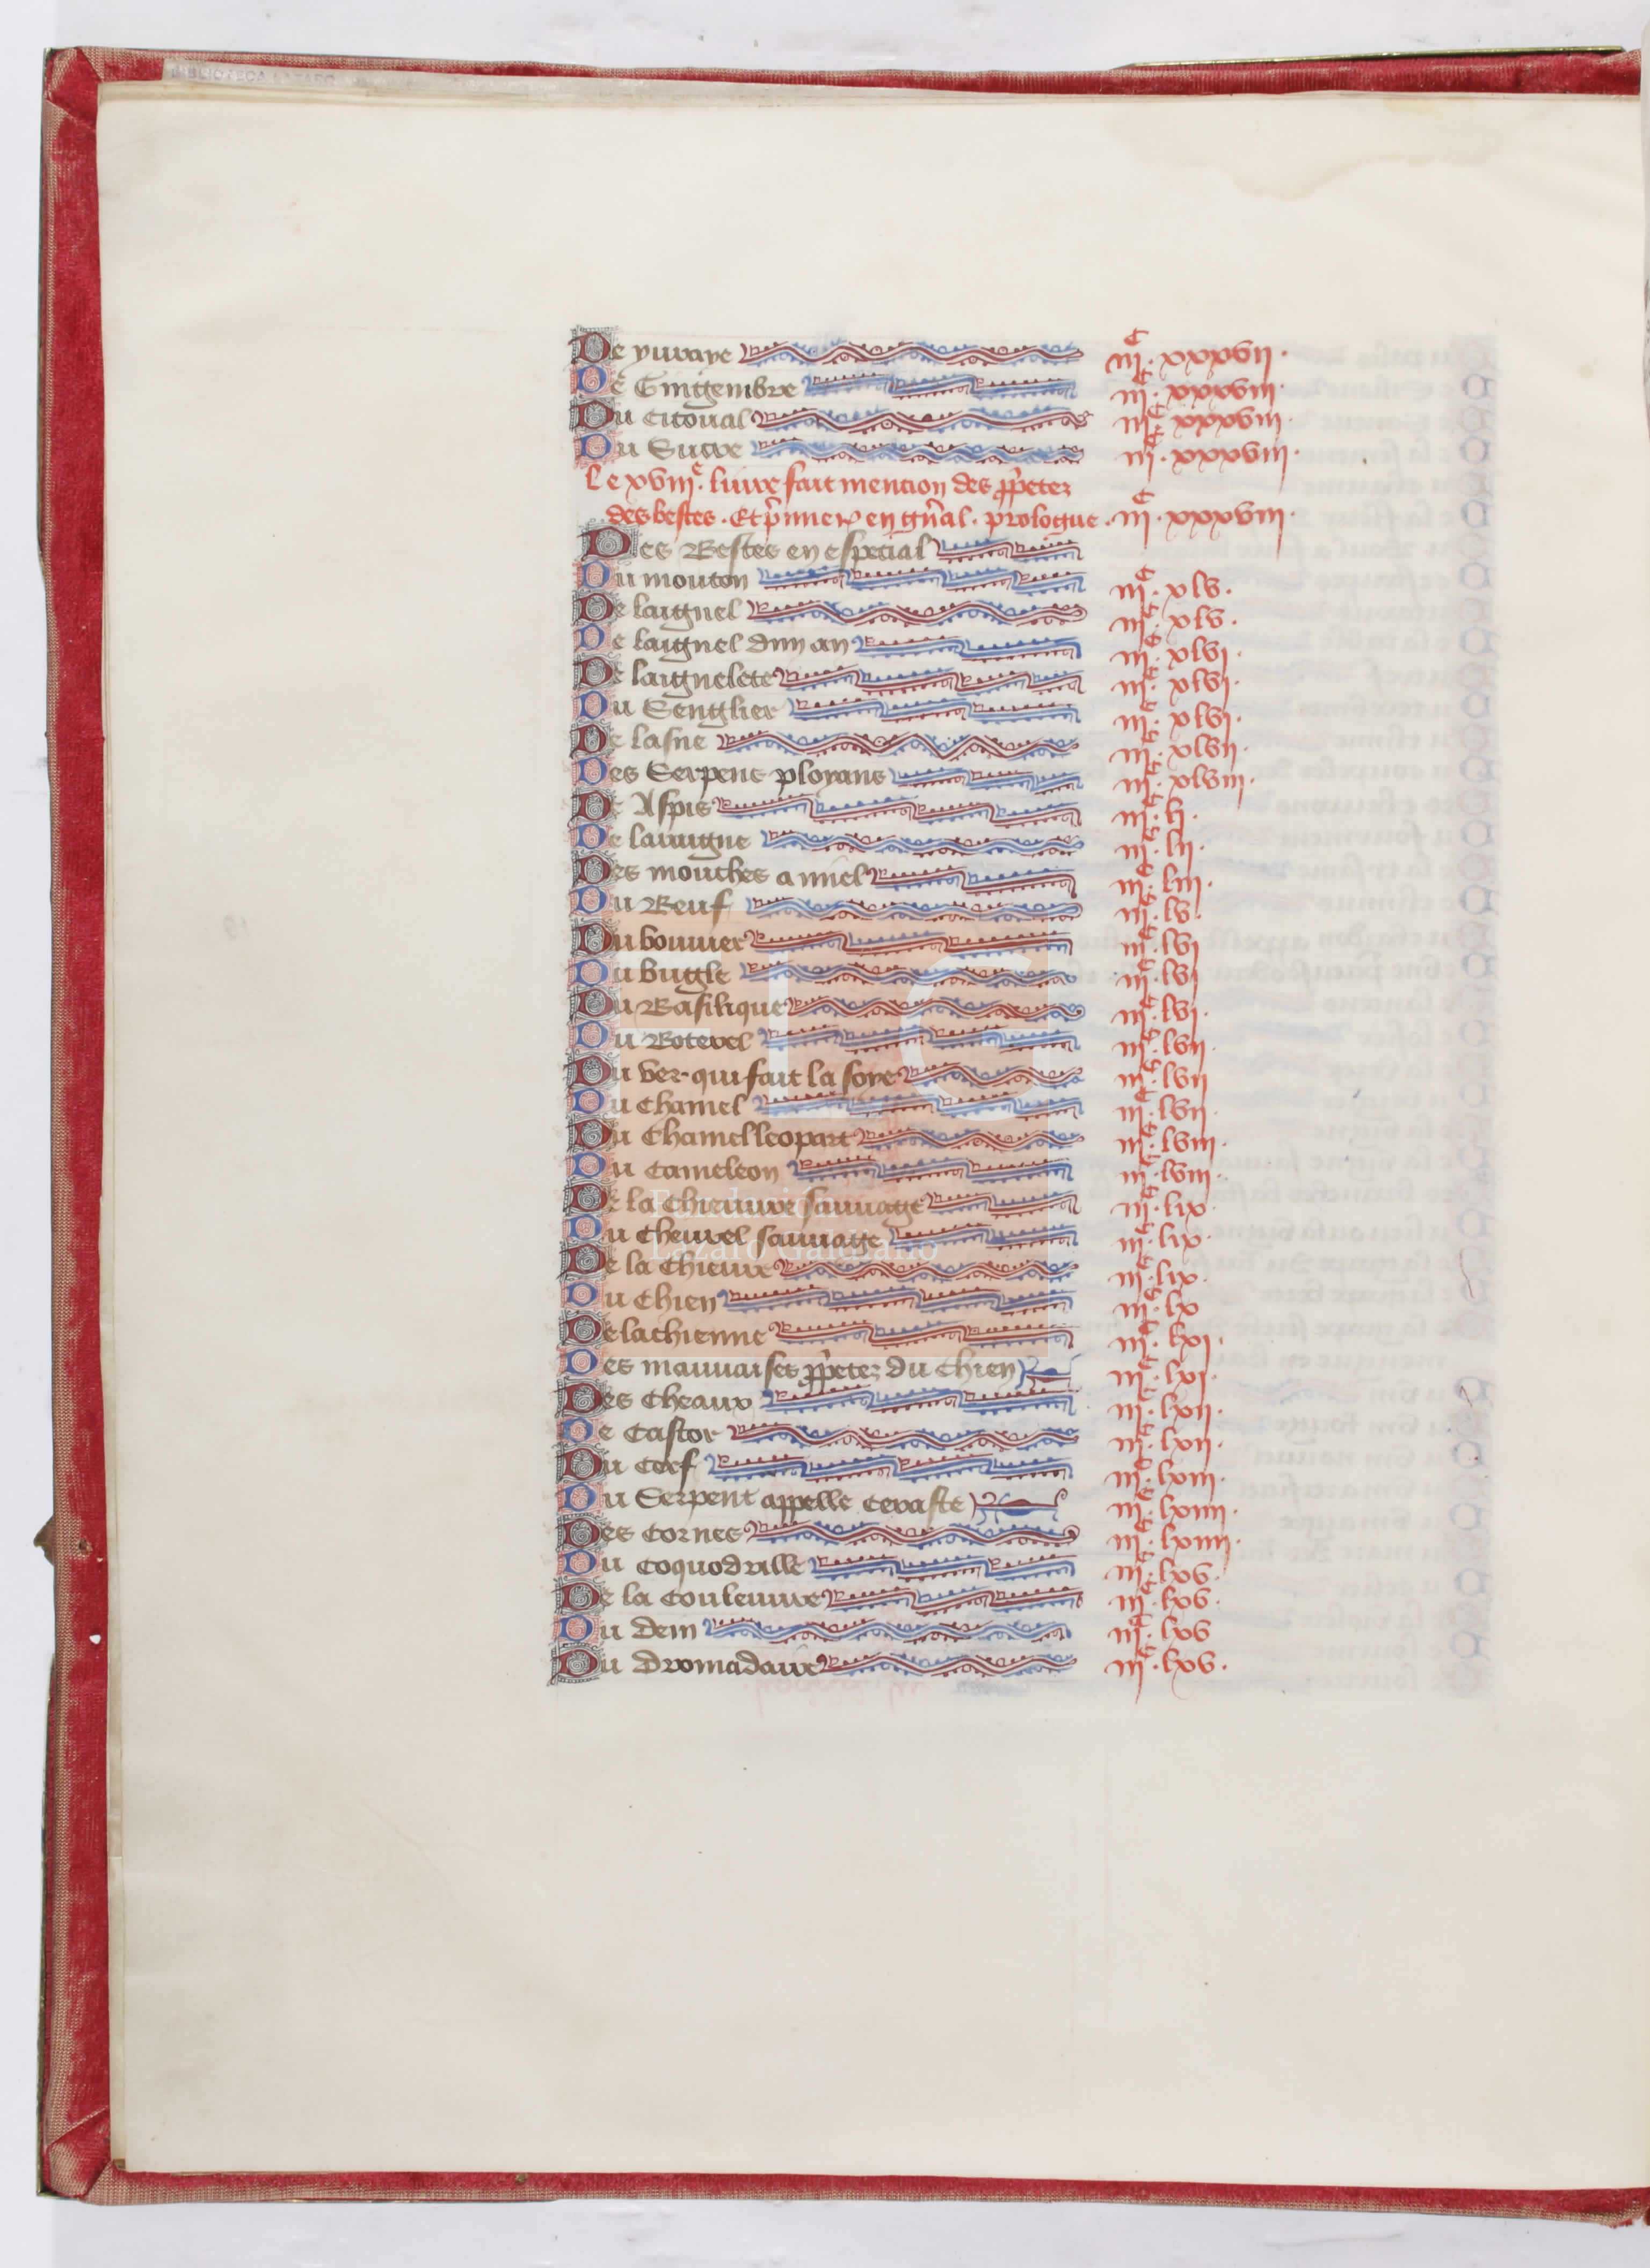 BIBLIOTECA LAZARO
De yuraye iij.C xxxvij.
De Gingembre iij.C xxxviij.
Du Citoual iij.C xxxviij.
Du Sucre iij.C xxxviij.
Le xviij.e liure fait mencion des ꝓp̃etez
des bestes. Et p̃mier en gñal. prologue. iij.C xxxviij.
Des Bestes en especial
Du mouton iij.C xlv.
De laignel iij.C xlv.
De laignel dun an iij.C xlvi.
De laignelete iij.C xlvi.
Du Senglier iij.C xlvi.
De lasne iij.C xlvij.
Des Serpens ployans iij.C xlviij.
De Aspis iij.C li.
De lauigne iij.C lij.
Des mouches a miel iij.C liij.
Du Beuf iij.C lv.
Du bouuier iij.C lvi
Du bugle iij.C lvi
Du Basilique iij.C lvi.
Du Boterel iij.C lvij.
Du ver qui fait la soye iij.C lvij
Du Chamel iij.C lvij.
Du Chamelleopart iij.C lviij.
Du Cameleon iij.C lviij.
De la Chieuure sauuage iij.C lix.
Du Cheurel sauuage iij.C lix.
De la Chieure iij.C lix.
Du Chien iij.C lx
De la chienne iij.C lxi.
Des mauuaises ꝓp̃etez du Chien iij.C lxi.
Des Cheaux iij.C lxij.
De Castor iij.C lxij.
Du Cerf iij.C lxiij.
Du Serpent appelle Ceraste iij.C lxiiij.
Des Cornes iij.C lxiiij.
Du Coquodrille iij.C lxv.
De la Couleuure iij.C lxv.
Du dein iij.C lxv
Du Dromadaire iij.C lxv.
Fundación
Lázaro Galdiano